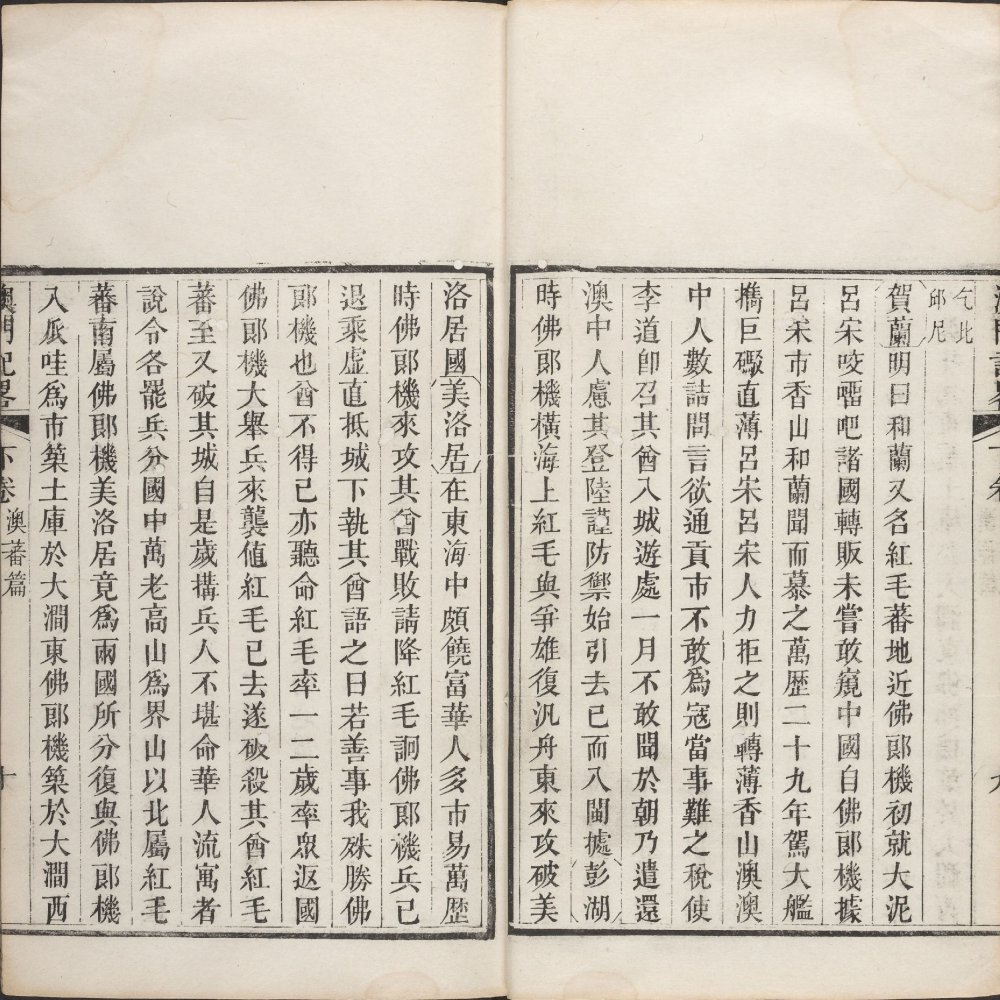 乞比
邱尼
賀蘭明曰和蘭又名紅毛蕃地近佛郎機初就大泥
呂宋咬𠺕吧諸國轉販未嘗敢窺中國自佛郎機據
呂宋市香山和蘭聞而慕之萬歷二十九年駕大艦
攜巨礮直薄呂宋呂宋人力拒之則轉薄香山澳澳
中人數詰問言欲通貢市不敢為寇當事難之稅使
李道卽召其酋入城遊處一月不敢聞於朝乃遣還
澳中人慮其登陸謹防禦始引去已而入閩據彭湖
時佛郎機橫海上紅毛與爭雄復汎舟東來攻破美
洛居國美洛居在東海中頗饒富華人多市易萬歷
時佛郎機來攻其酋戰敗請降紅毛詗佛郎機兵已
退乘虛直抵城下執其酋語之曰若善事我殊勝佛
郎機也酋不得已亦聽命紅毛率一二歲率眾返國
佛郎機大舉兵來襲値紅毛已去遂破殺其酋紅毛
蕃至又破其城自是歲搆兵人不堪命華人流寓者
說令各罷兵分國中萬老高山為界山以北屬紅毛
蕃南屬佛郎機美洛居竟為兩國所分復與佛郎機
入瓜哇為市築土庫於大澗東佛郎機築於大澗西
澳門記畧
下卷
澳蕃篇
十